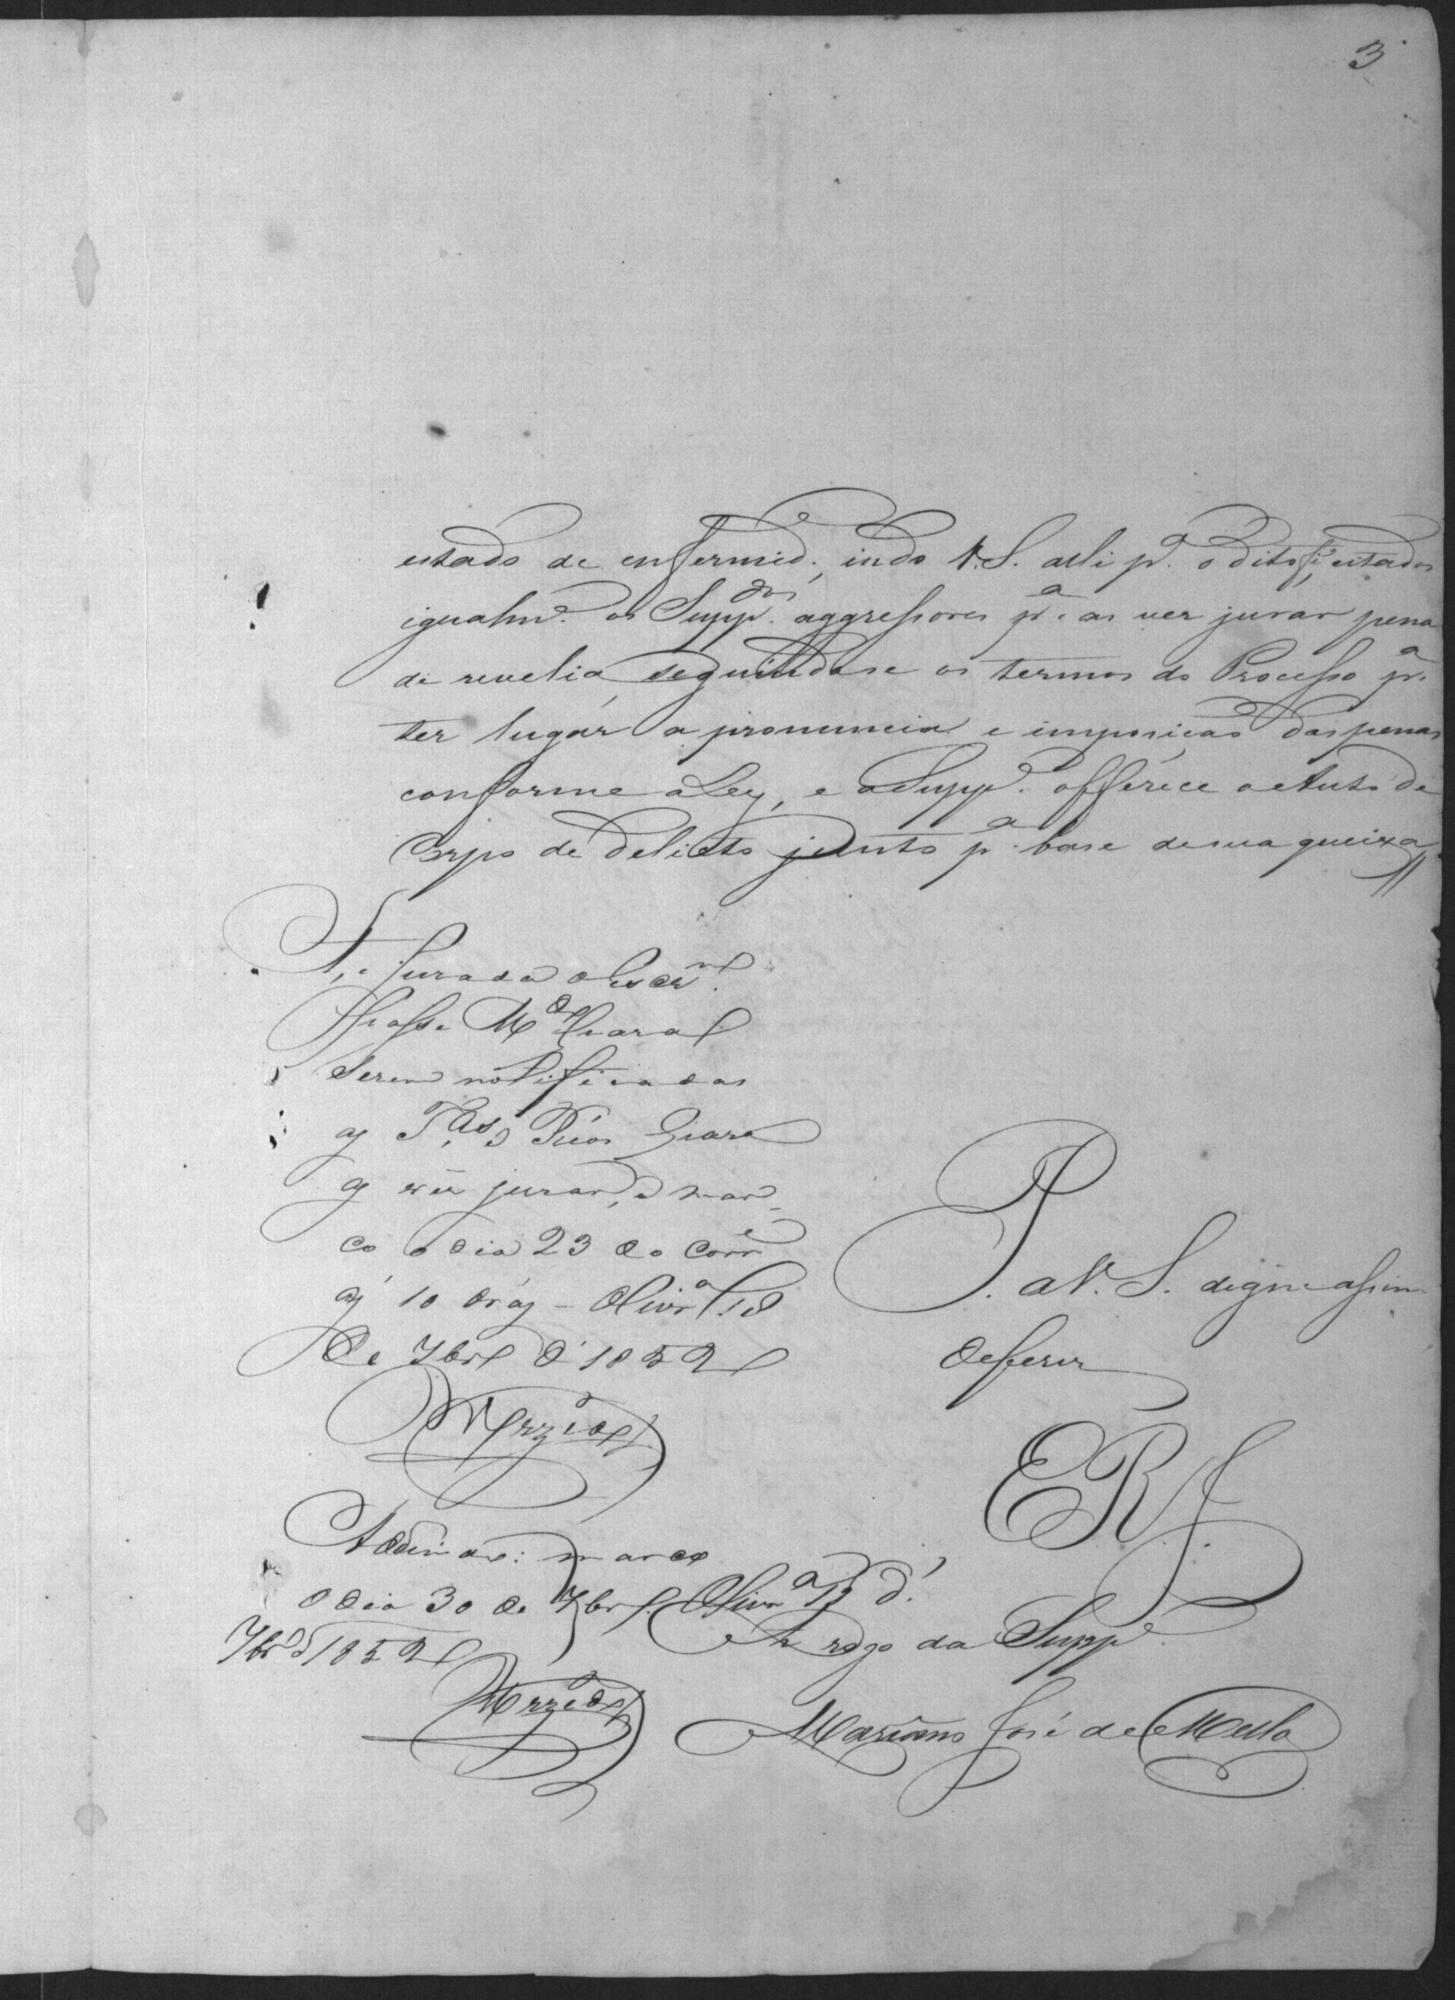 3
estado de enfermid.e, indo V.S. alli p.a o dito fim, citados
igualm.e os Supp.dos aggressores p.a as ver jurar pena
de revelia, seguindose os termos do Processo p.a
ter lugar a pronuncia e imposicaõ das penas
conforme a Ley, e a Supp.e offerece o Auto de
Corpo de delicto junto p.a base de sua queixa
A, e jurada o Escr.m
passe M.do
serem notificadas
as T.as, e Reos
jurar, e mar-
co o dia 23 do corr.e
as 10 oras - Oliv.ra 18
de 7br.o d' 1852
P. a V. S. digne assim
deferir
E R J
Addindo: marco
o dia 30 de 7br.o Oliv.ra d'
7br.o d' 1852
A rogo da Supp.e
Mariano José de Mello